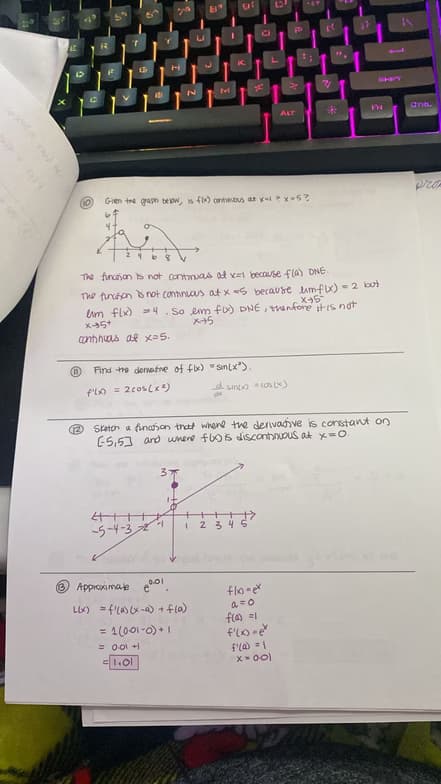 ⑩ Given the graph below, is f(x) continuous at x=1? x=5?
6
4
2
2 4 6 8
The function is not continuous at x=1 because f(a) DNE.
The function is not continuous at x=5 because lim f(x) = 2 but
x→5⁻
lim f(x) = 4. So lim f(x) DNE, therefore it is not
x→5⁺ x→5
continuous at x=5.
⑪ Find the derivative of f(x) = sin(x²).
f'(x) = 2cos(x²) d/dx sin(x) = cos(x)
⑫ Sketch a function that where the derivative is constant on
[-5,5] and where f(x) is discontinuous at x=0.
3
1
-5 -4 -3 -2 -1 1 2 3 4 5
⑬ Approximate e^0.01.
L(x) = f'(a)(x-a) + f(a)
= 1(0.01-0)+1
= 0.01 +1
= 1.01
f(x) = eˣ
a=0
f(a) = 1
f'(x) = eˣ
f'(a) = 1
x = 0.01